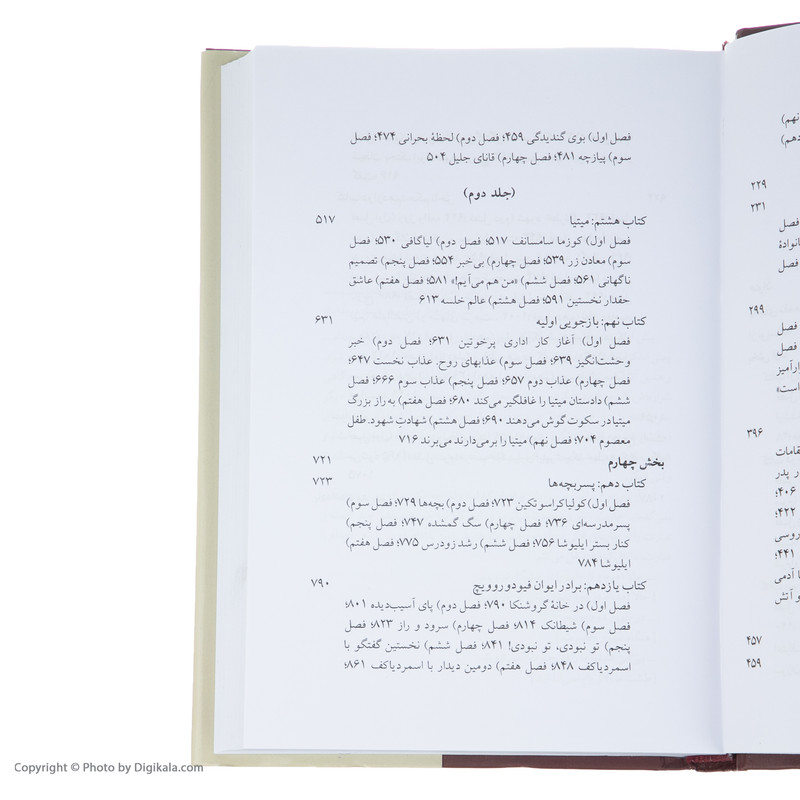 نهم)
دهم)
۲۲۹
۲۳۱
فصل
فصل
۲۹۹
فصل
فصل
است»
۳۹۶
ر پدر
۴۰۶؛
۴۲۲؛
روسی
۴۴۱؛
ا آدمی
و آتش
۴۵۷
۴۵۹
فصل اول) بوی گندیدگی ۴۵۹؛ فصل دوم) لحظهٔ بحرانی ۴۷۴؛ فصل
سوم) پیازچه ۴۸۱؛ فصل چهارم) قانای جلیل ۵۰۴
(جلد دوم)
کتاب هشتم: میتیا ۵۱۷
فصل اول) کوزما سامسانف ۵۱۷؛ فصل دوم) لیاگافی ۵۳۰؛ فصل
سوم) معادن زر ۵۳۹؛ فصل چهارم) بی‌خبر ۵۵۴؛ فصل پنجم) تصمیم
ناگهانی ۵۶۱؛ فصل ششم) «من هم می‌آیم!» ۵۸۱؛ فصل هفتم) عاشق
حقدار نخستین ۵۹۱؛ فصل هشتم) عالم خلسه ۶۱۳
کتاب نهم: بازجویی اولیه ۶۳۱
فصل اول) آغاز کار اداری پرخوتین ۶۳۱؛ فصل دوم) خبر
وحشت‌انگیز ۶۳۹؛ فصل سوم) عذابهای روح. عذاب نخست ۶۴۷؛
فصل چهارم) عذاب دوم ۶۵۷؛ فصل پنجم) عذاب سوم ۶۶۶؛ فصل
ششم) دادستان میتیا را غافلگیر می‌کند ۶۸۰؛ فصل هفتم) به راز بزرگ
میتیا در سکوت گوش می‌دهند ۶۹۰؛ فصل هشتم) شهادتِ شهود. طفل
معصوم ۷۰۴؛ فصل نهم) میتیا را برمی‌دارند می‌برند ۷۱۶
بخش چهارم ۷۲۱
کتاب دهم: پسربچه‌ها ۷۲۳
فصل اول) کولیا کراسوتکین ۷۲۳؛ فصل دوم) بچه‌ها ۷۲۹؛ فصل سوم)
پسر مدرسه‌ای ۷۳۶؛ فصل چهارم) سگ گمشده ۷۴۷؛ فصل پنجم)
کنار بستر ایلیوشا ۷۵۶؛ فصل ششم) رشد زودرس ۷۷۵؛ فصل هفتم)
ایلیوشا ۷۸۴
کتاب یازدهم: برادر ایوان فیودوروویچ ۷۹۰
فصل اول) در خانهٔ گروشنکا ۷۹۰؛ فصل دوم) پای آسیب‌دیده ۸۰۱؛
فصل سوم) شیطانک ۸۱۴؛ فصل چهارم) سرود و راز ۸۲۳؛ فصل
پنجم) تو نبودی، تو نبودی! ۸۴۱؛ فصل ششم) نخستین گفتگو با
اسمردیاکف ۸۴۸؛ فصل هفتم) دومین دیدار با اسمردیاکف ۸۶۱؛
Copyright © Photo by Digikala.com